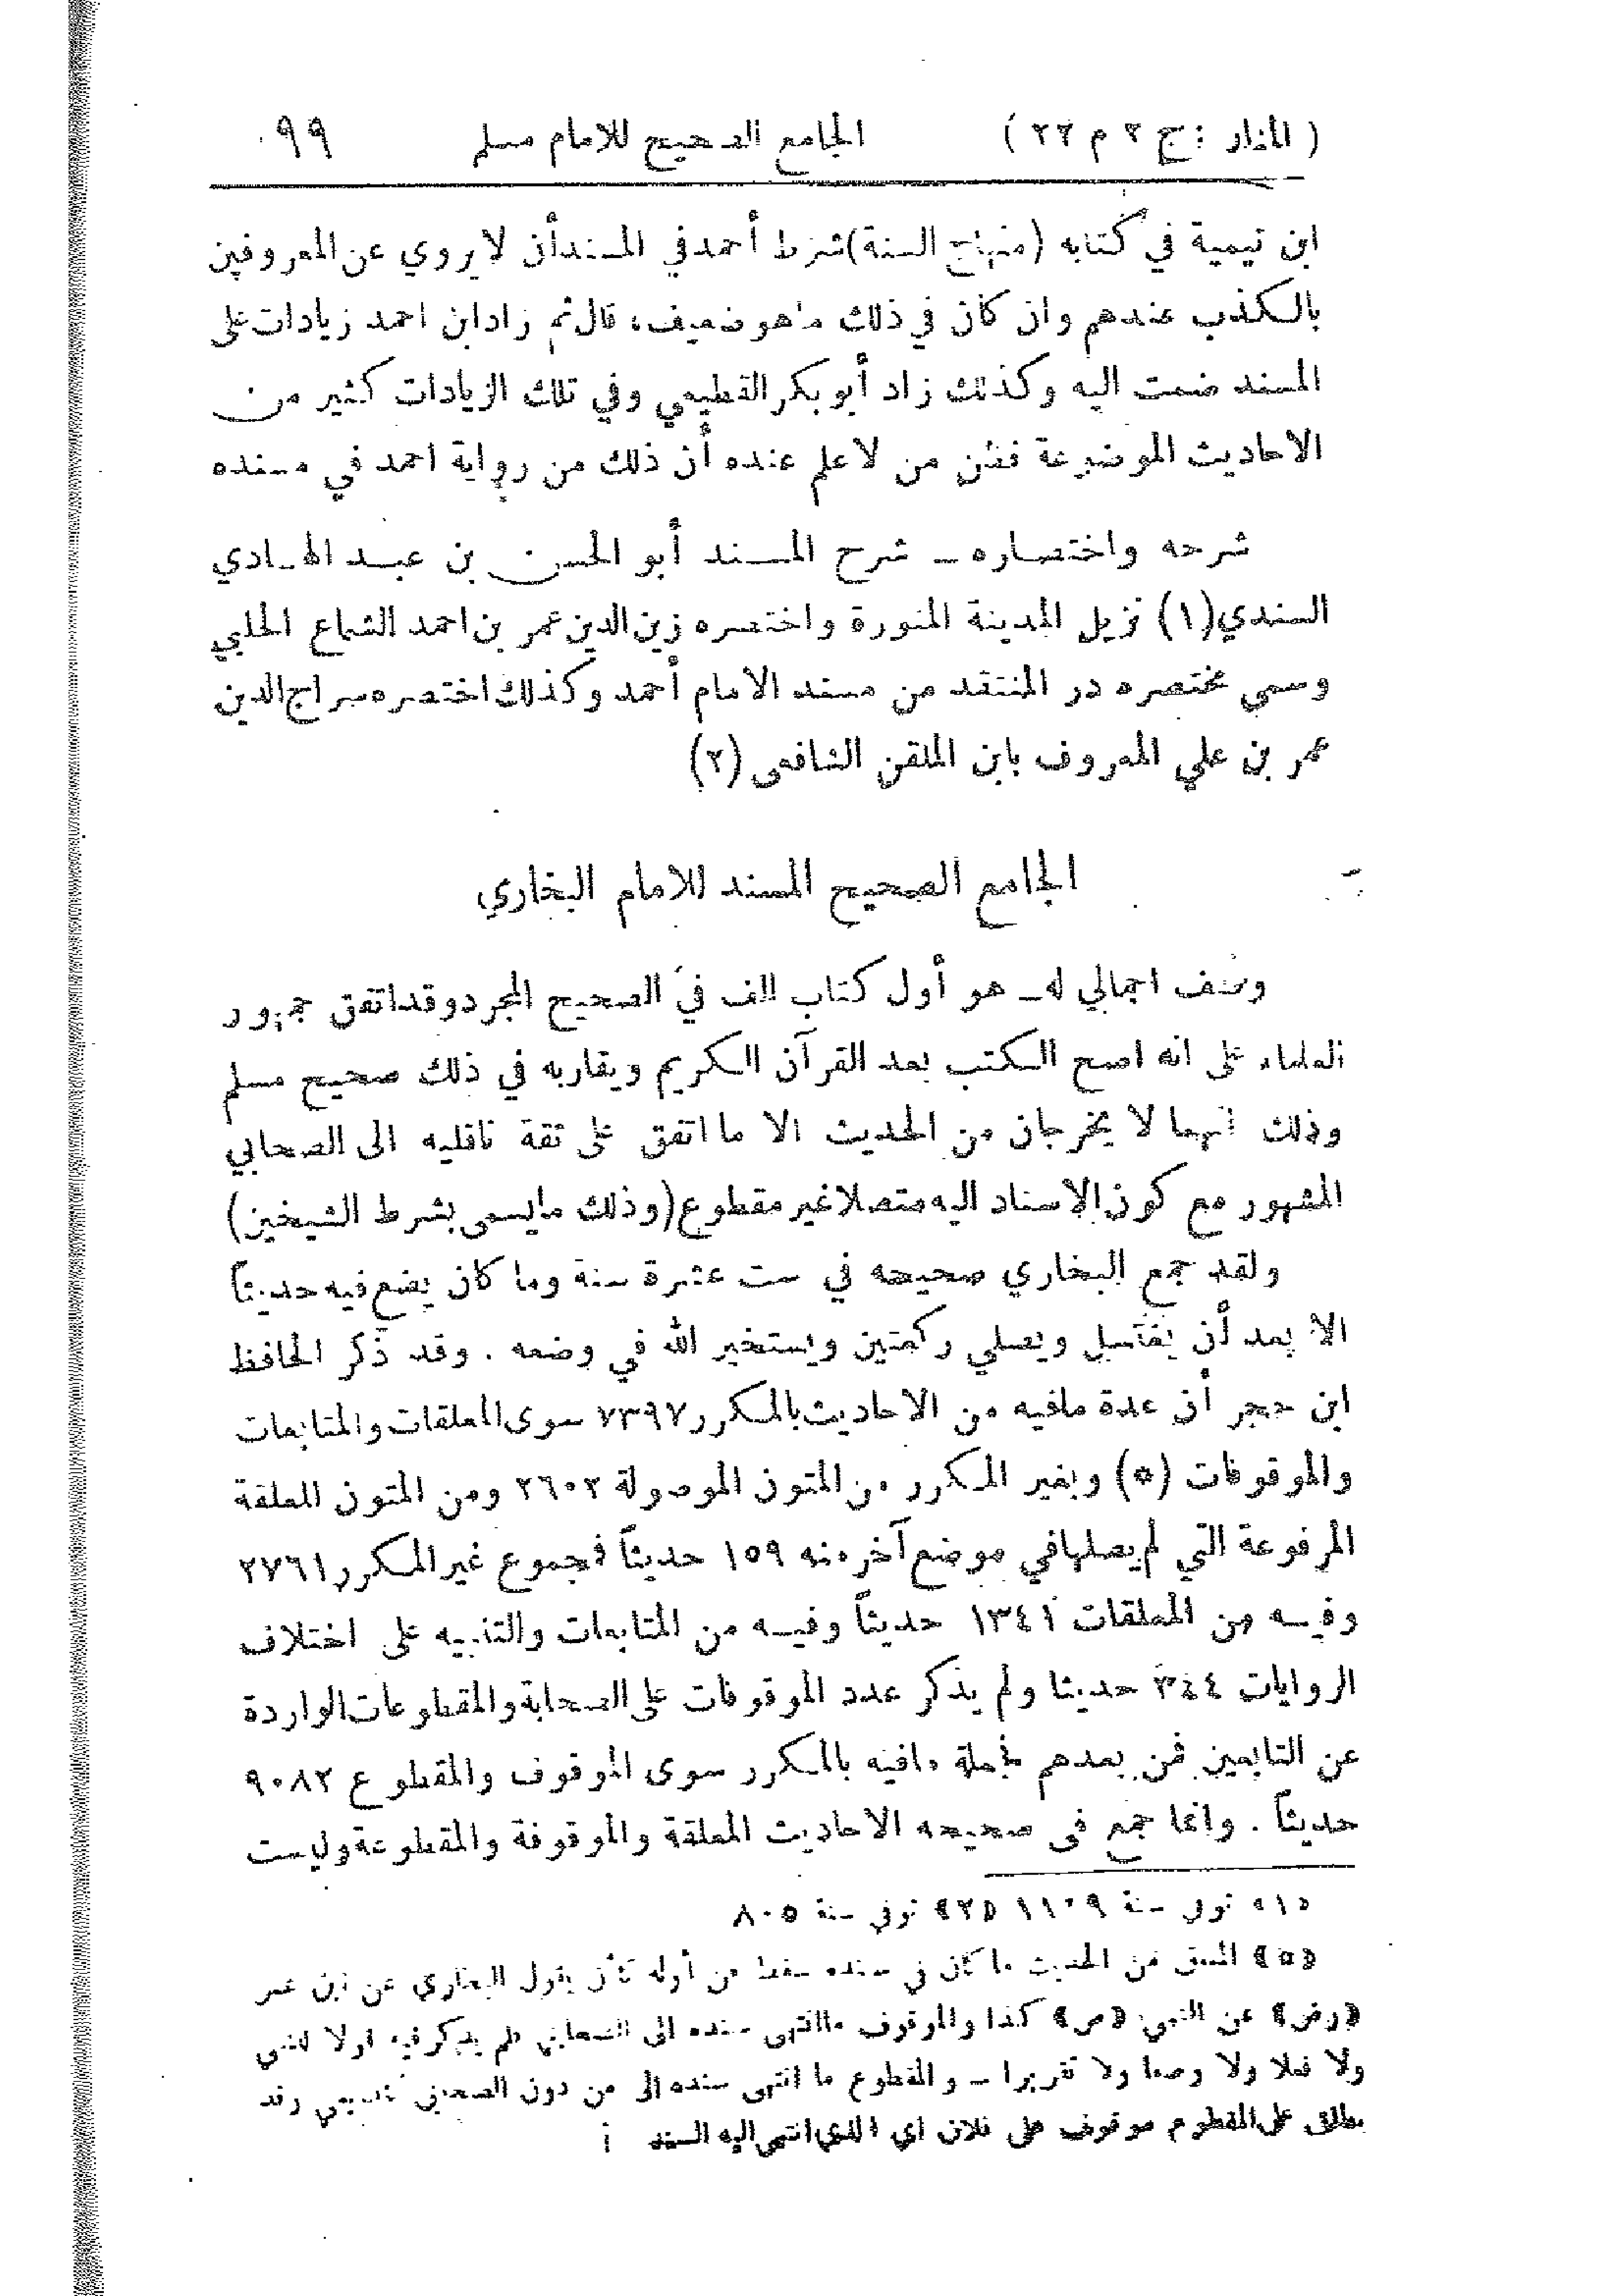 ( المنار : ج ٢ م ٢٢ ) الجامع الصحيح للامام مسلم ٩٩
ابن تيمية في كتابه (منهاج السنة) شرط أحمد في المسند أن لا يروي عن المعروفين
بالكذب عندهم وان كان في ذلك ماهو ضعيف، قال ثم زاد ابن احمد زيادات على
المسند ضمت اليه وكذلك زاد أبو بكر القطيعي وفي تلك الزيادات كثير من
الاحاديث الموضوعة فظن من لا علم عنده أن ذلك من رواية احمد في مسنده
شرحه واختصاره ــ شرح المسند أبو الحسن بن عبد الهادي
السندي (١) نزيل المدينة المنورة واختصره زين الدين عمر بن احمد الشماع الحلبي
وسمي مختصره در المنتقد من مسند الامام أحمد وكذلك اختصره سراج الدين
عمر بن علي المعروف بابن الملقن الشافعى (٢)
الجامع الصحيح المسند للامام البخاري
وصف اجمالي له ــ هو أول كتاب الف في الصحيح المجرد وقد اتفق جمهور
العلماء على انه اصح الكتب بعد القرآن الكريم ويقاربه في ذلك صحيح مسلم
وذلك انهما لا يخرجان من الحديث الا ما اتفق على ثقة ناقليه الى الصحابي
المشهور مع كون الاسناد اليه متصلا غير مقطوع (وذلك مايسمى بشرط الشيخين)
ولقد جمع البخاري صحيحه في ست عشرة سنة وما كان يضع فيه حديثاً
الا بعد أن يغتسل ويصلي ركعتين ويستخير الله في وضعه . وقد ذكر الحافظ
ابن حجر أن عدة مافيه من الاحاديث بالمكرر ٧٣٩٧ سوى المعلقات والمتابعات
والموقوفات (٥) وبغير المكرر من المتون الموصولة ٢٦٠٢ ومن المتون المعلقة
المرفوعة التي لم يصلها في موضع آخر منه ١٥٩ حديثاً فمجموع غير المكرر ٢٧٦١
وفيه من المعلقات ١٣٤١ حديثاً وفيه من المتابعات والتنبيه على اختلاف
الروايات ٣٤٤ حديثا ولم يذكر عدد الموقوفات على الصحابة والمقطوعات الواردة
عن التابعين فمن بعدهم فجملة مافيه بالمكرر سوى الموقوف والمقطوع ٩٠٨٢
حديثاً . وانما جمع في صحيحه الاحاديث المعلقة والموقوفة والمقطوعة وليست
«١» توفي سنة ١١٠٩ «٢» توفي سنة ٨٠٥
«٥» المعلق من الحديث ما كان في سنده سقط من أوله كأن يقول البخاري عن ابن عمر
«رض» عن النبي «ص» كذا والموقوف ماانتهى سنده الى الصحابي ولم يذكر فيه قولا للنبي
ولا فعلا ولا وصفا ولا تقريرا ــ والمقطوع ما انتهى سنده الى من دون الصحابي كتابعي وقد
يطلق على المقطوع موقوف على فلان اي الذي انتهى اليه السند